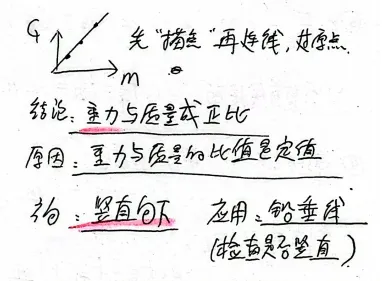 G
先"描点"再连线,过原点.
m
结论:重力与质量成正比
原因:重力与质量的比值是定值
方向:竖直向下 应用:铅垂线
(检查是否竖直)